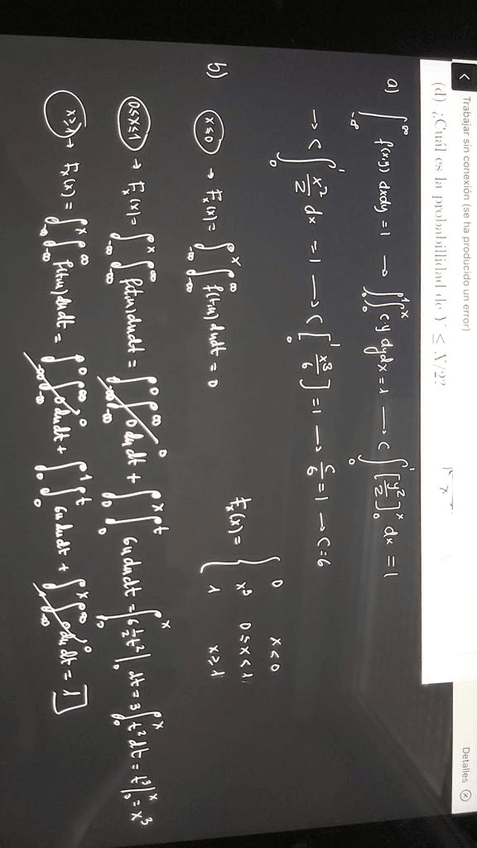 < Trabajar sin conexión (se ha producido un error) Detalles
(d) ¿Cuál es la probabilidad de Y ≤ X/2?
a) ∫_{-∞}^{∞} f(x,y) dxdy = 1 → ∫_0^1∫_0^x cy dydx = 1 → c ∫_0^1 [y²/2]_0^x dx = 1
→ c ∫_0^1 x²/2 dx = 1 → c [x³/6]_0^1 = 1 → c/6 = 1 → c = 6
F_x(x) = { 0 x<0
x³ 0≤x<1
1 x≥1
b) x≤0 → F_x(x) = ∫_{-∞}^x∫_{-∞}^∞ f(t,u) dudt = 0
0≤x≤1 → F_x(x) = ∫_{-∞}^x∫_{-∞}^∞ f(t,u) dudt = ∫_{-∞}^0∫_{-∞}^∞ 0 dudt + ∫_0^x∫_0^t 6u dudt = ∫_0^x 6 ½t²|_0 dt = 3∫_0^x t² dt = t³|_0^x = x³
x≥1 → F_x(x) = ∫_{-∞}^x∫_{-∞}^∞ f(t,u) dudt = ∫_{-∞}^0∫_{-∞}^∞ 0 dudt + ∫_0^1∫_0^t 6u dudt + ∫_1^x∫_{-∞}^∞ 0 dudt = 1